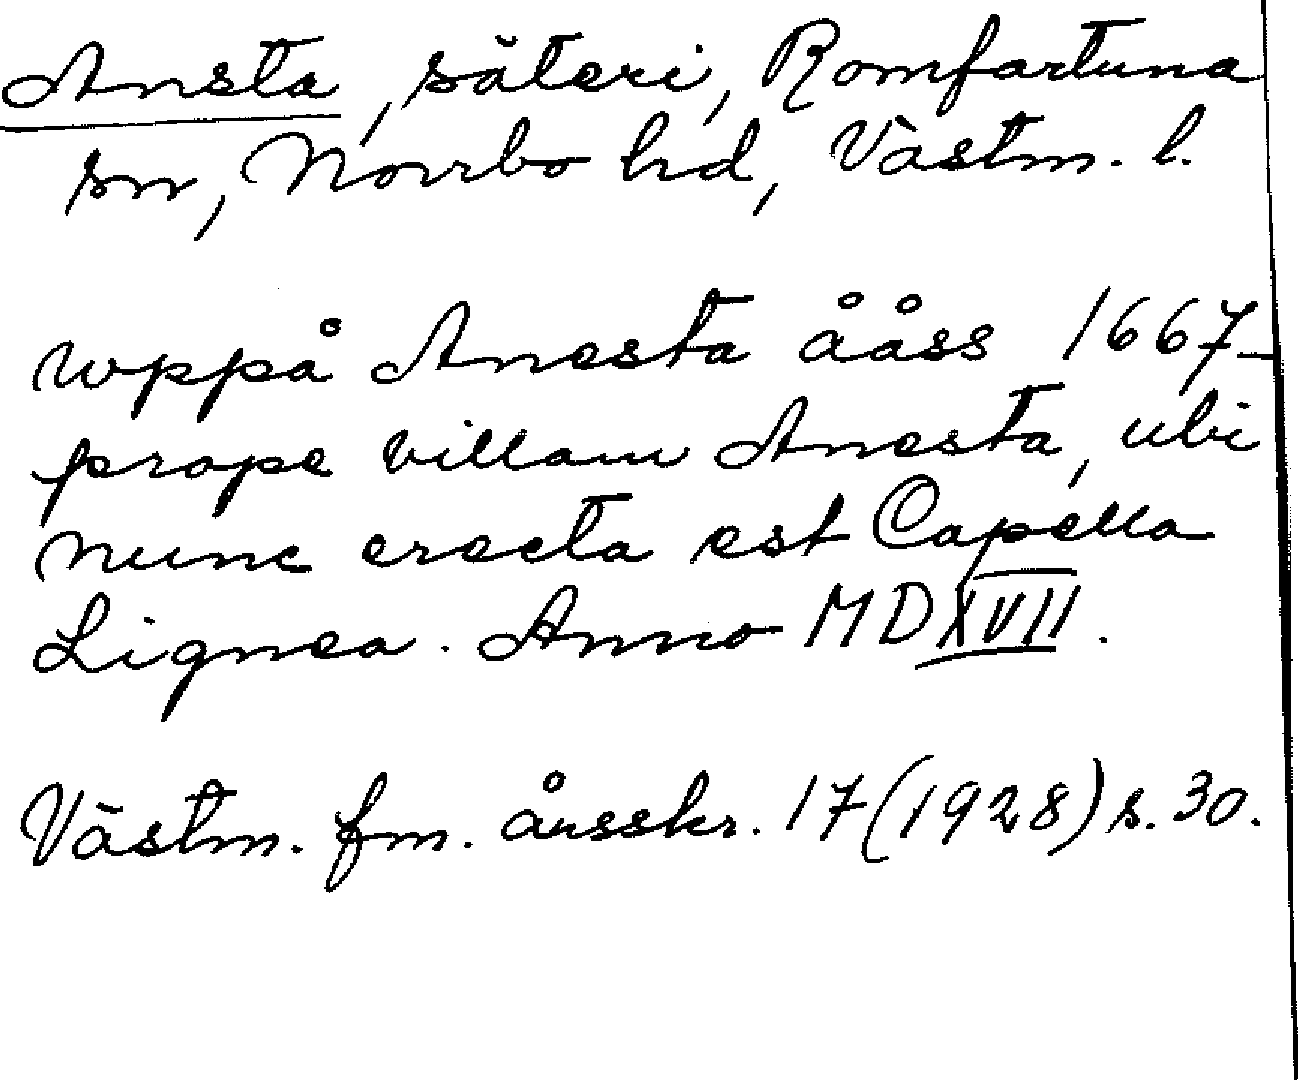 Ansta, säteri, Romfartuna
sn, Norrbo hd, Västm. l.
wppå Anesta ååss 1667
prope villam Anesta, ubi
nunc erecta est Capella
Lignea. Anno MDXVII.
Västm. fm. årsskr. 17 (1928) s. 30.